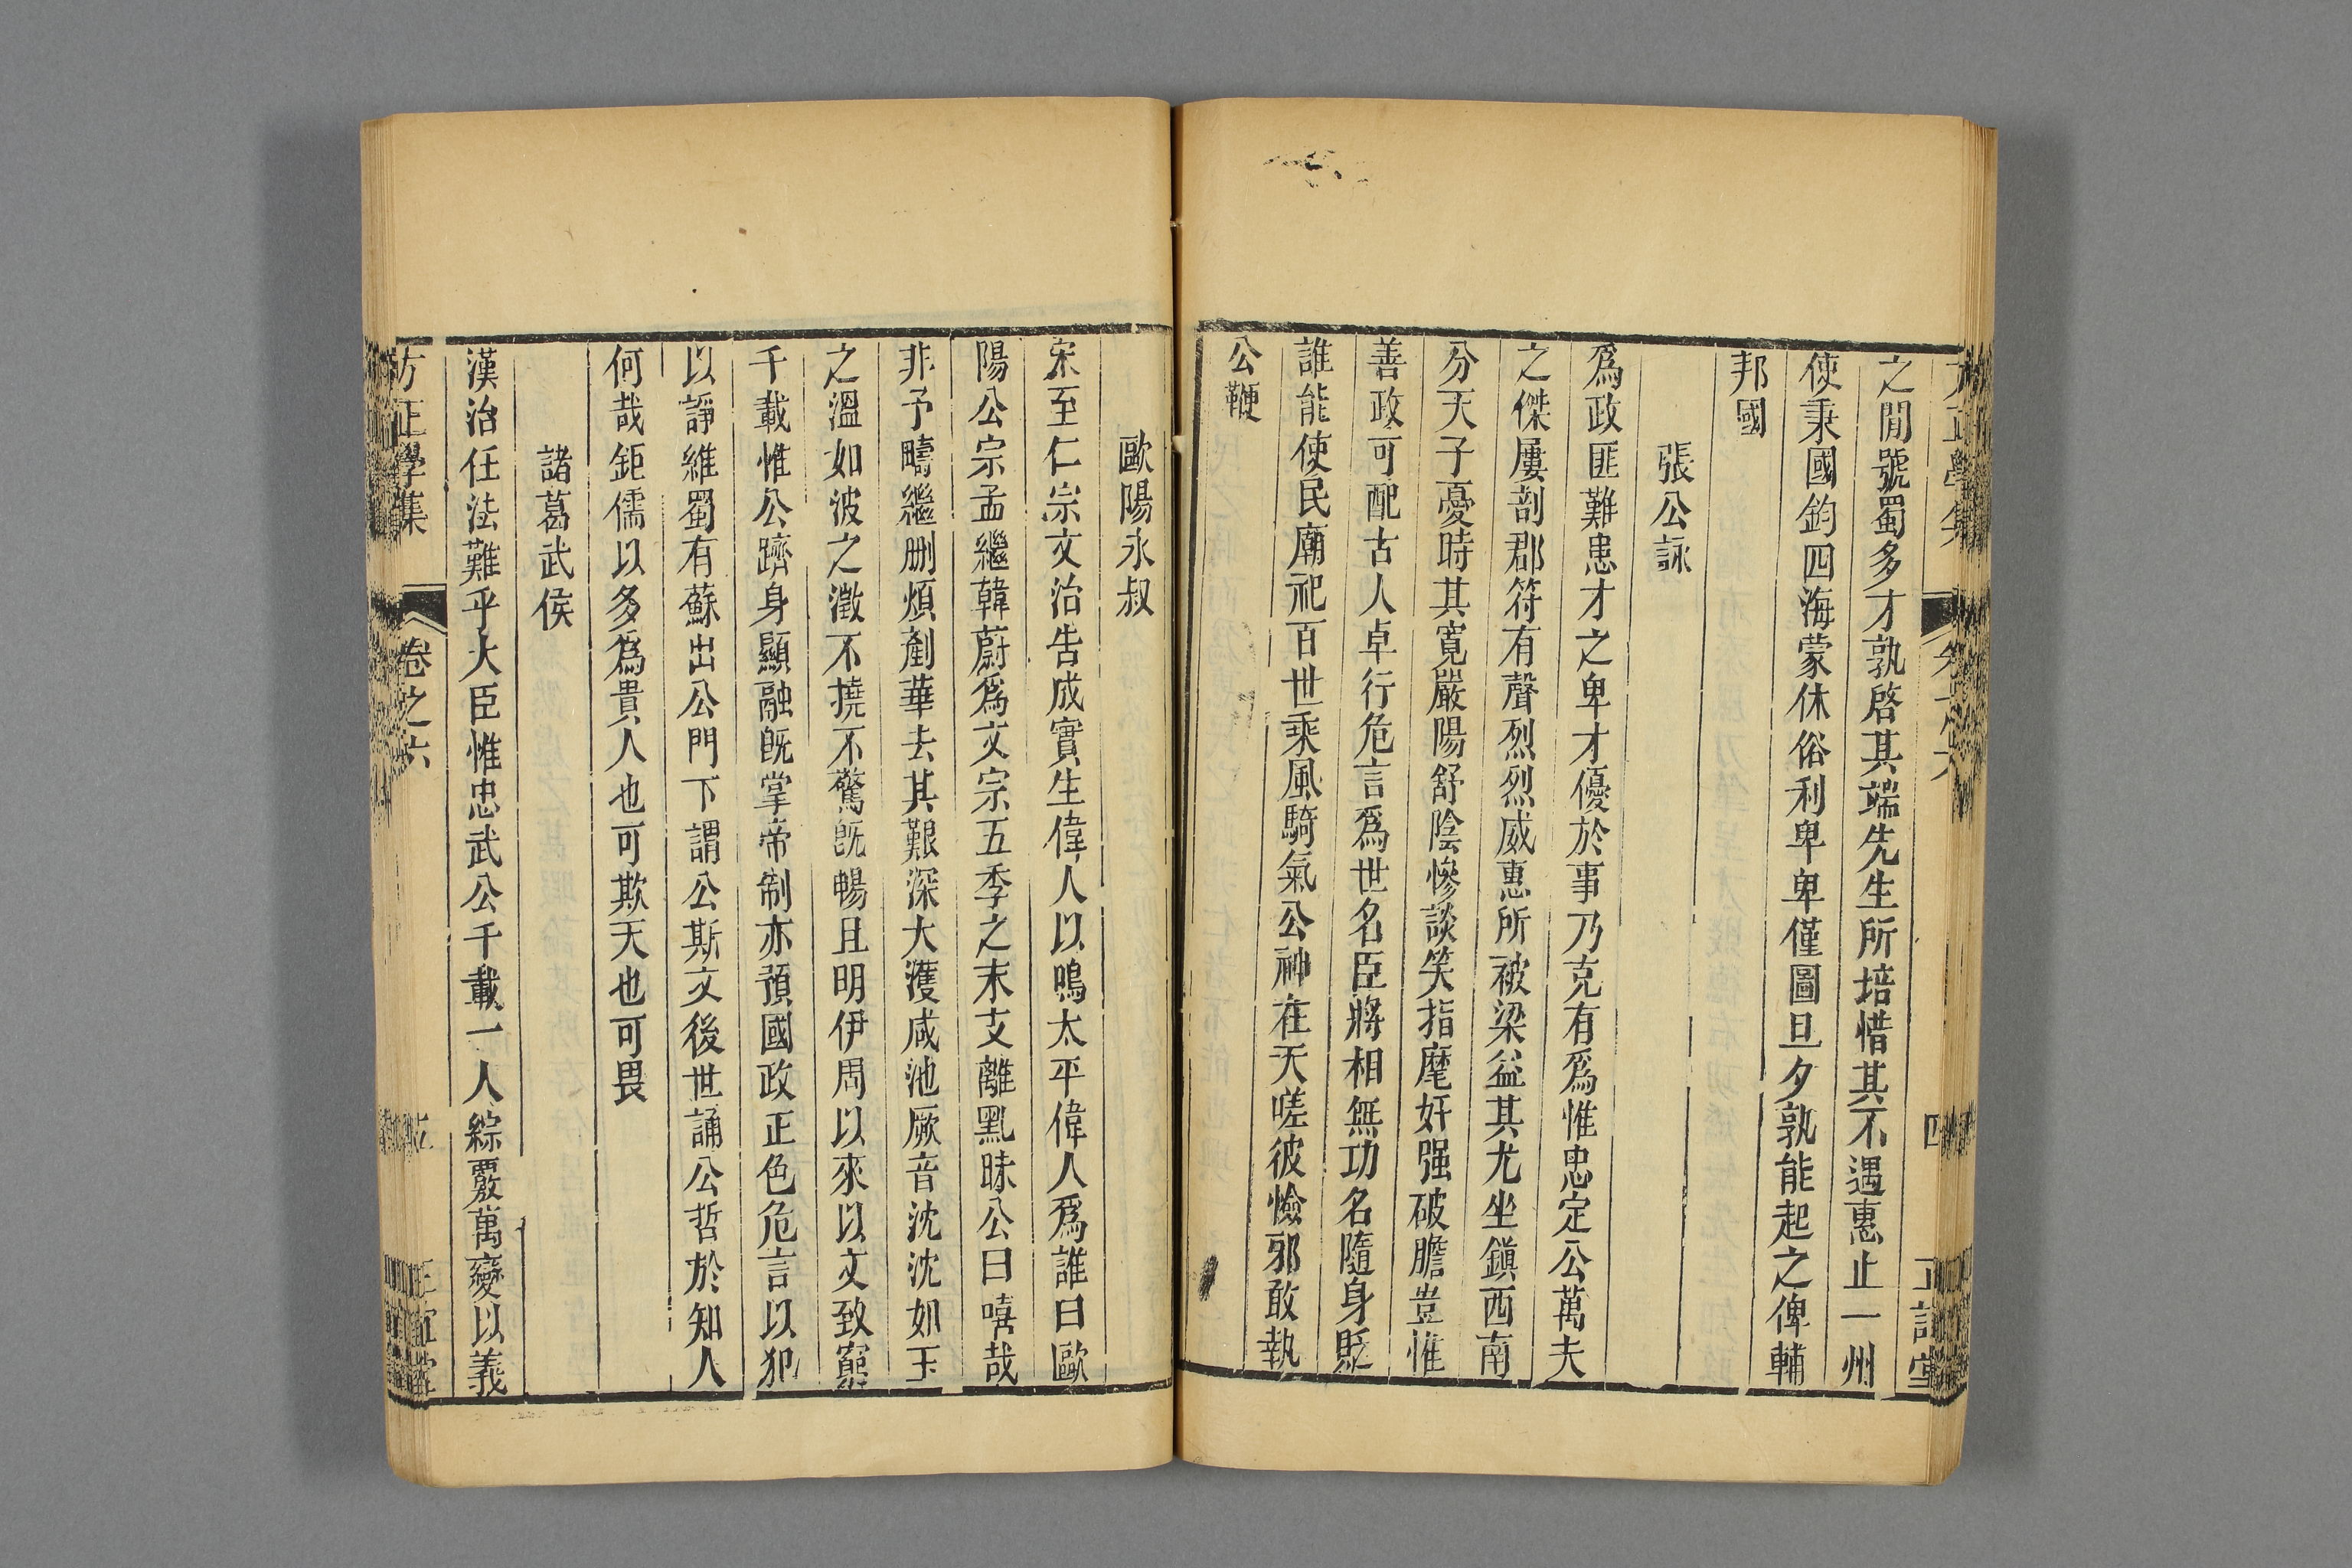 之閒號蜀多才孰啓其端先生所培惜其不遇惠止一州
使秉國鈞四海蒙休俗利卑卑僅圖旦夕孰能起之俾輔
邦國
張公詠
爲政匪難患才之卑才優於事乃克有爲惟忠定公萬夫
之傑屢剖郡符有聲烈烈威惠所被梁益其尤坐鎭西南
分天子憂時其寬嚴陽舒陰慘談笑指麾奸强破膽豈惟
善政可配古人卓行危言爲世名臣將相無功名隨身貶
誰能使民廟祀百世乘風騎氣公神在天嗟彼憸邪敢執
公鞭
歐陽永叔
宋至仁宗文治告成實生偉人以鳴太平偉人爲誰曰歐
陽公宗孟繼韓蔚爲文宗五季之末支離黑昧公曰嘻哉
非予疇繼刪煩剷華去其艱深大濩咸池厥音沈沈如玉
之溫如波之澂不撓不驚旣暢且明伊周以來以文致窮
千載惟公躋身顯融旣掌帝制亦預國政正色危言以犯
以諍維蜀有蘇出公門下謂公斯文後世誦公哲於知人
何哉鉅儒以多爲貴人也可欺天也可畏
諸葛武侯
漢治任法難乎大臣惟忠武公千載一人綜覈萬變以義
方正學集
卷之六